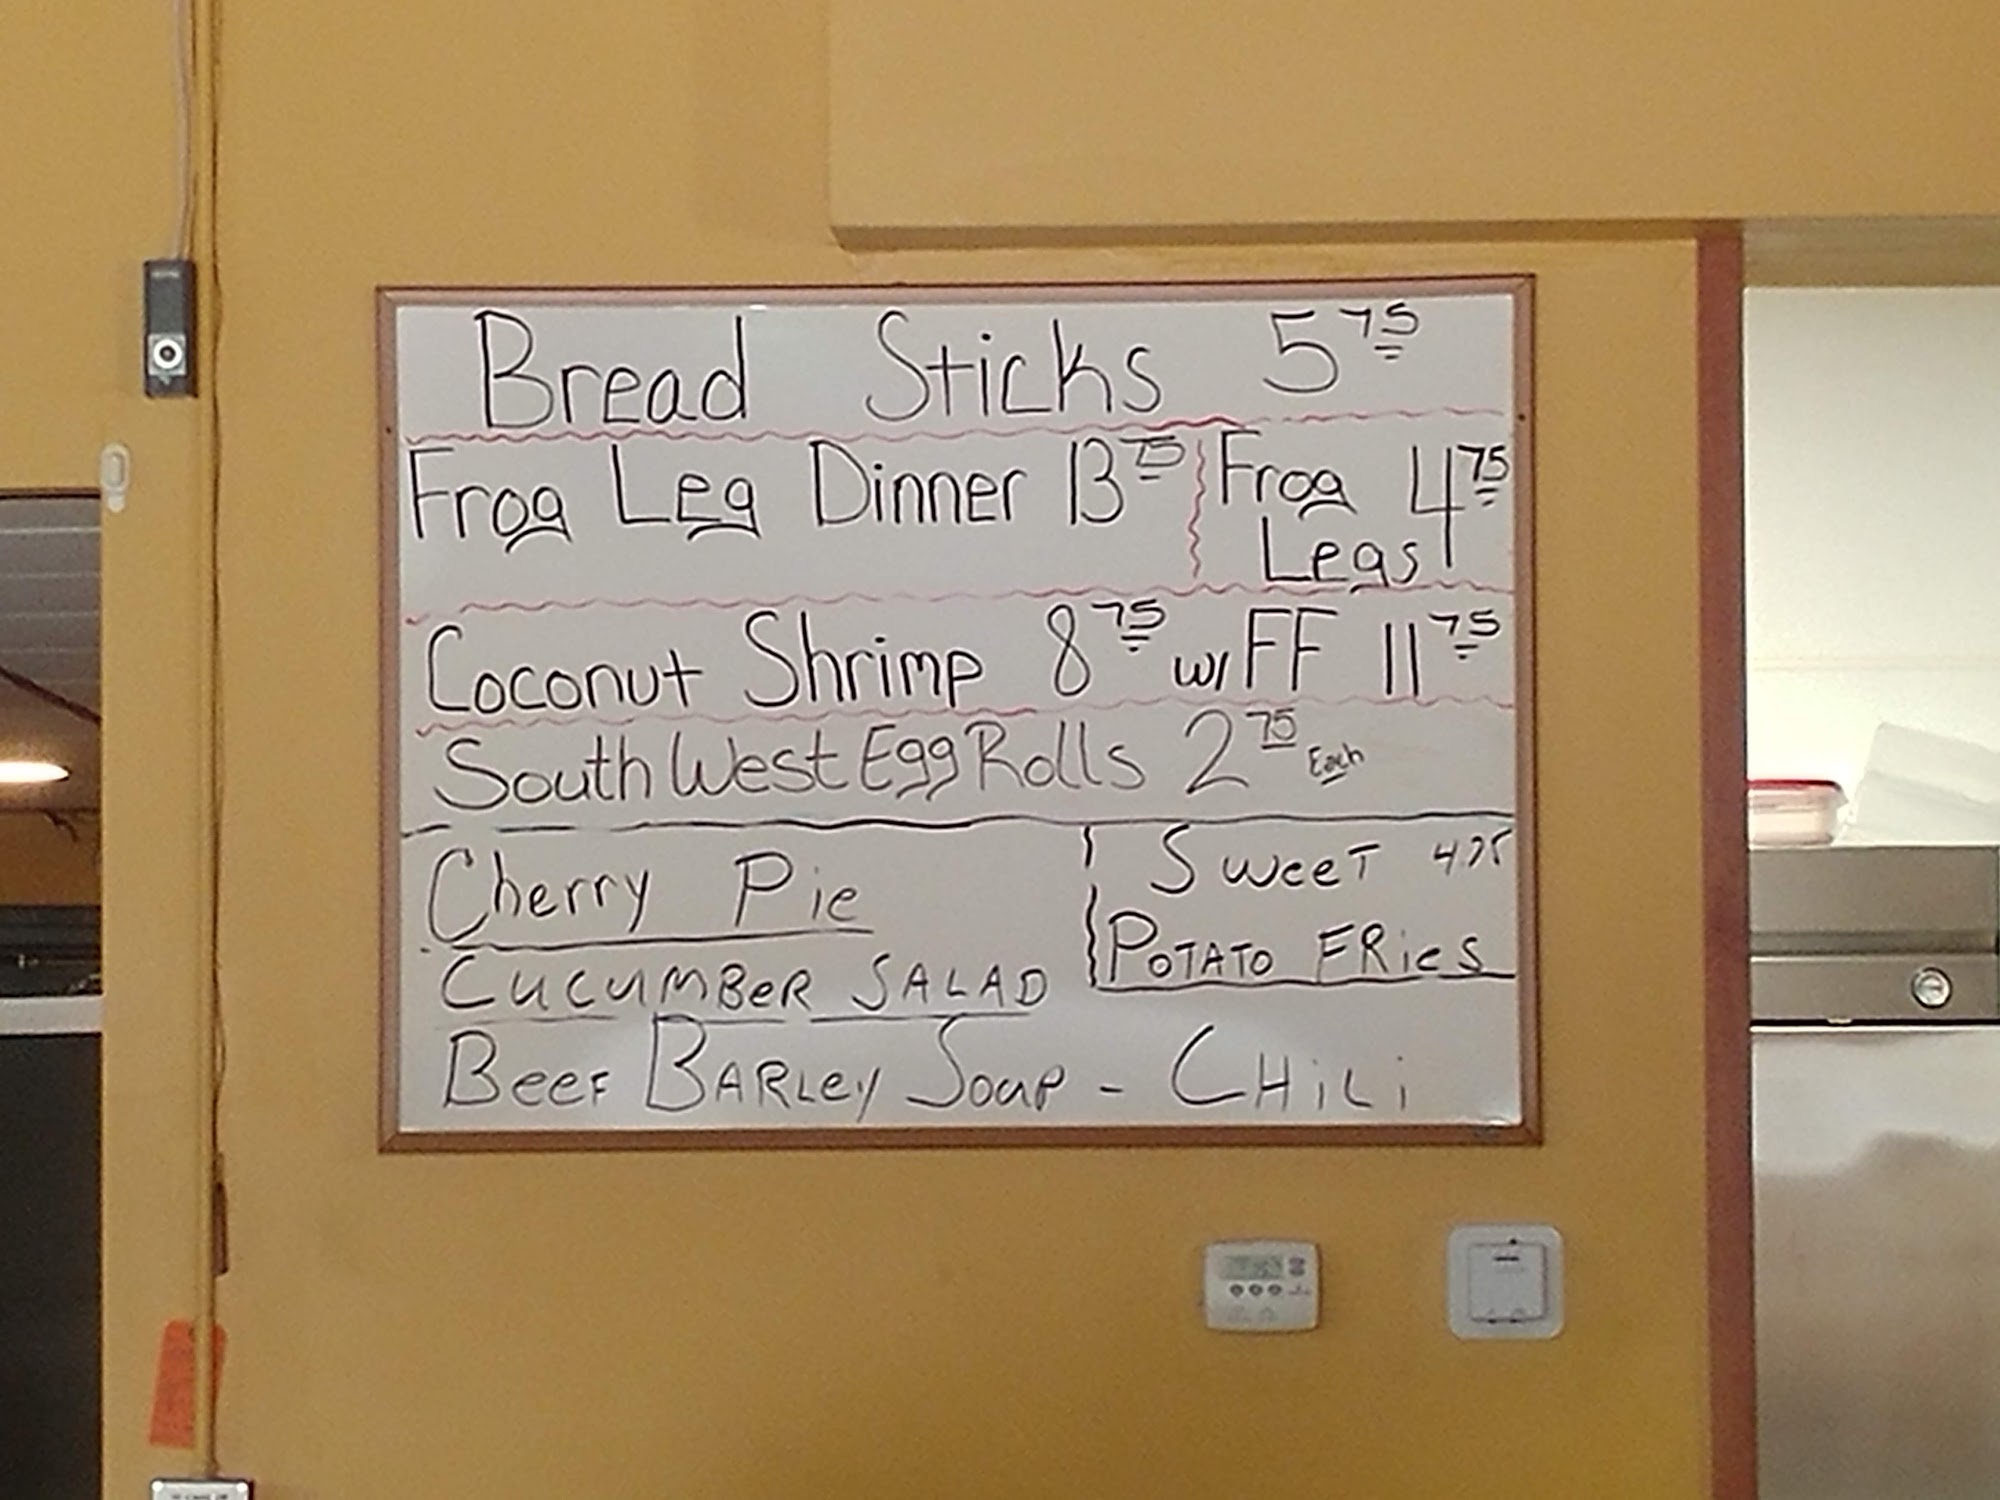 Bread Sticks 5 75
Frog Leg Dinner 13 75
Frog 4 75
Legs
Coconut Shrimp 8 75 w/ FF 11 75
South West Egg Rolls 2 75 Each
Cherry Pie
Sweet 4 75
Potato Fries
Cucumber Salad
Beef Barley Soup - Chili